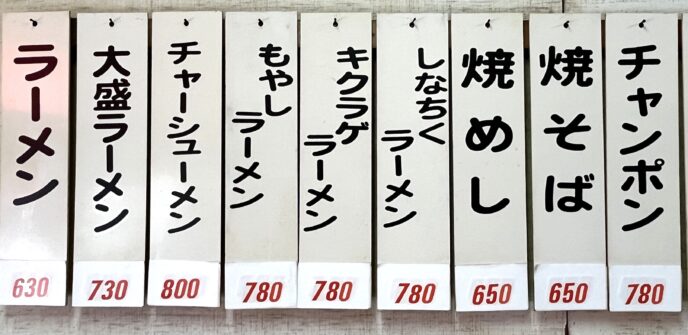 ラーメン
630
大盛ラーメン
730
チャーシューメン
800
もやし
ラーメン
780
キクラゲ
ラーメン
780
しなちく
ラーメン
780
焼めし
650
焼そば
650
チャンポン
780